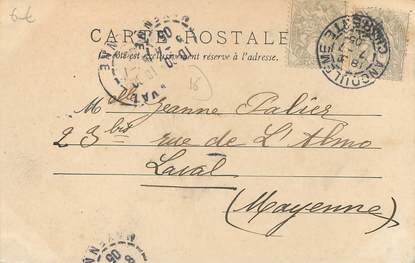 6-€
CARTE POSTALE
Ce côté est exclusivement réservé à l'adresse.
18
Mlle Jeanne Palier
23 bis rue de L'Almo
Laval
(Mayenne)
ANGOULEME
LAVAL
MAYENNE